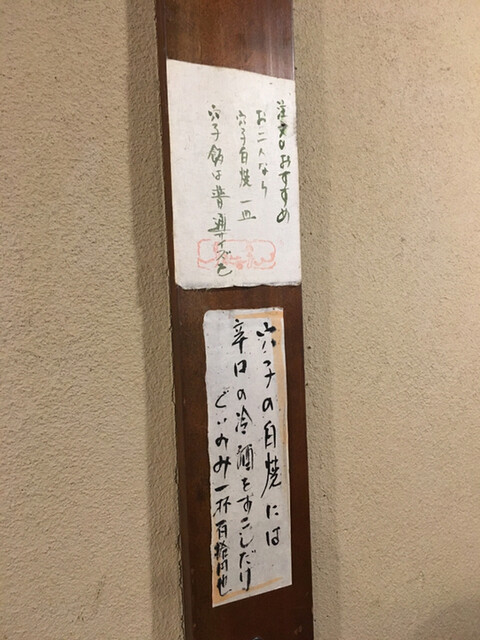 注文のおすすめ
お二人なら
穴子白焼 一皿
穴子飯は普通サイズを
穴子の白焼には
辛口の冷酒をすこしだけ
ぐいのみ一杯百拾円也